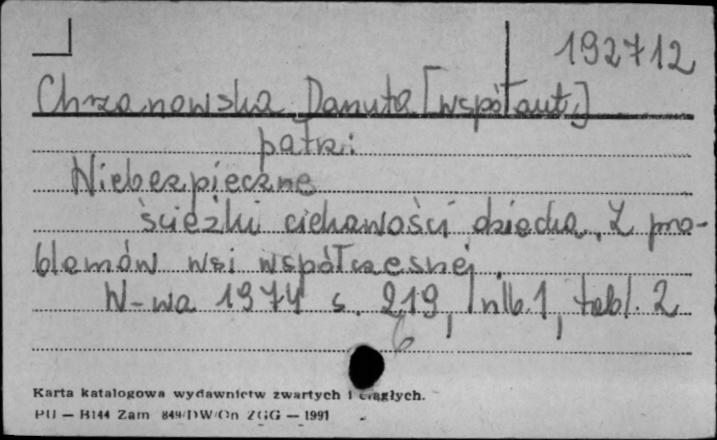 192712
Chrzanowska Danuta [współaut.]
patrz:
Niebezpieczne
ścieżki ciekawości dziecka. Z pro-
blemów wsi współczesnej.
W-wa 1974 s. 219, nlb. 1, tabl. 2
6
Karta katalogowa wydawnictw zwartych i ciągłych.
PU — B144 Zam 849/DW/On ZGG — 1991